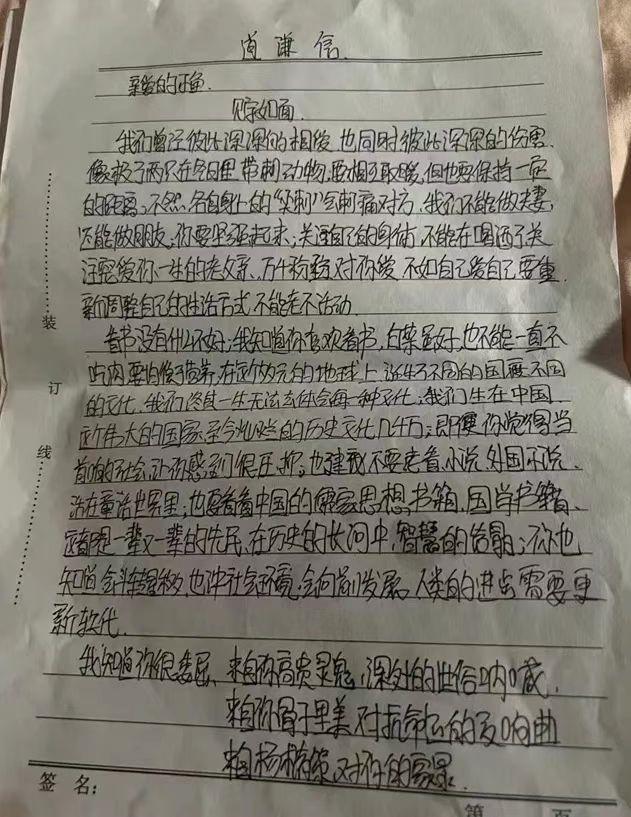 道谦信.
亲爱的正鱼
见字如面.
我们曾经彼此深深的相爱 也同时彼此深深的伤害.
像极了两只在冬日里 带刺动物,要相互取暖,但也要保持一定
的距离.不然.各自身上的“尖刺”会刺痛对方.我们不能做夫妻,
还能做朋友,你要坚强起来,关注自己的身体,不能在喝酒了关
注疼爱你一生的老父亲.万千粉黛对你爱 不如自己爱自己.要重
新调整自己的生活方式 不能老不活动.
看书没有什么不好,我知道你喜欢看书.白菜虽好,也不能一直不
吃肉.要均衡营养,在这颗的地球上 诞生了不同的国度 不同
的文化.我们终其一生无法去体会每一种文化.我们生在中国
这个伟大的国家.至今灿烂的历史文化几千万;即便你觉得当
前的社会,让你感到很压抑;也建议不要老看小说.外国小说.
活在童话世界里;也要看看中国的儒家思想.书籍.国学书籍、
这都是一辈又一辈的先民.在历史的长河中.智慧的结晶;你也
知道 斗转星移,社会环境,会向前发展.人类的进步需要更
新软代.
我知道你很委屈、来自你高贵灵魂,深处的世俗呐喊.
来自你骨子里美 对抗命运的交响曲
来自杨 对你的
签名:
第 页
装
订
线